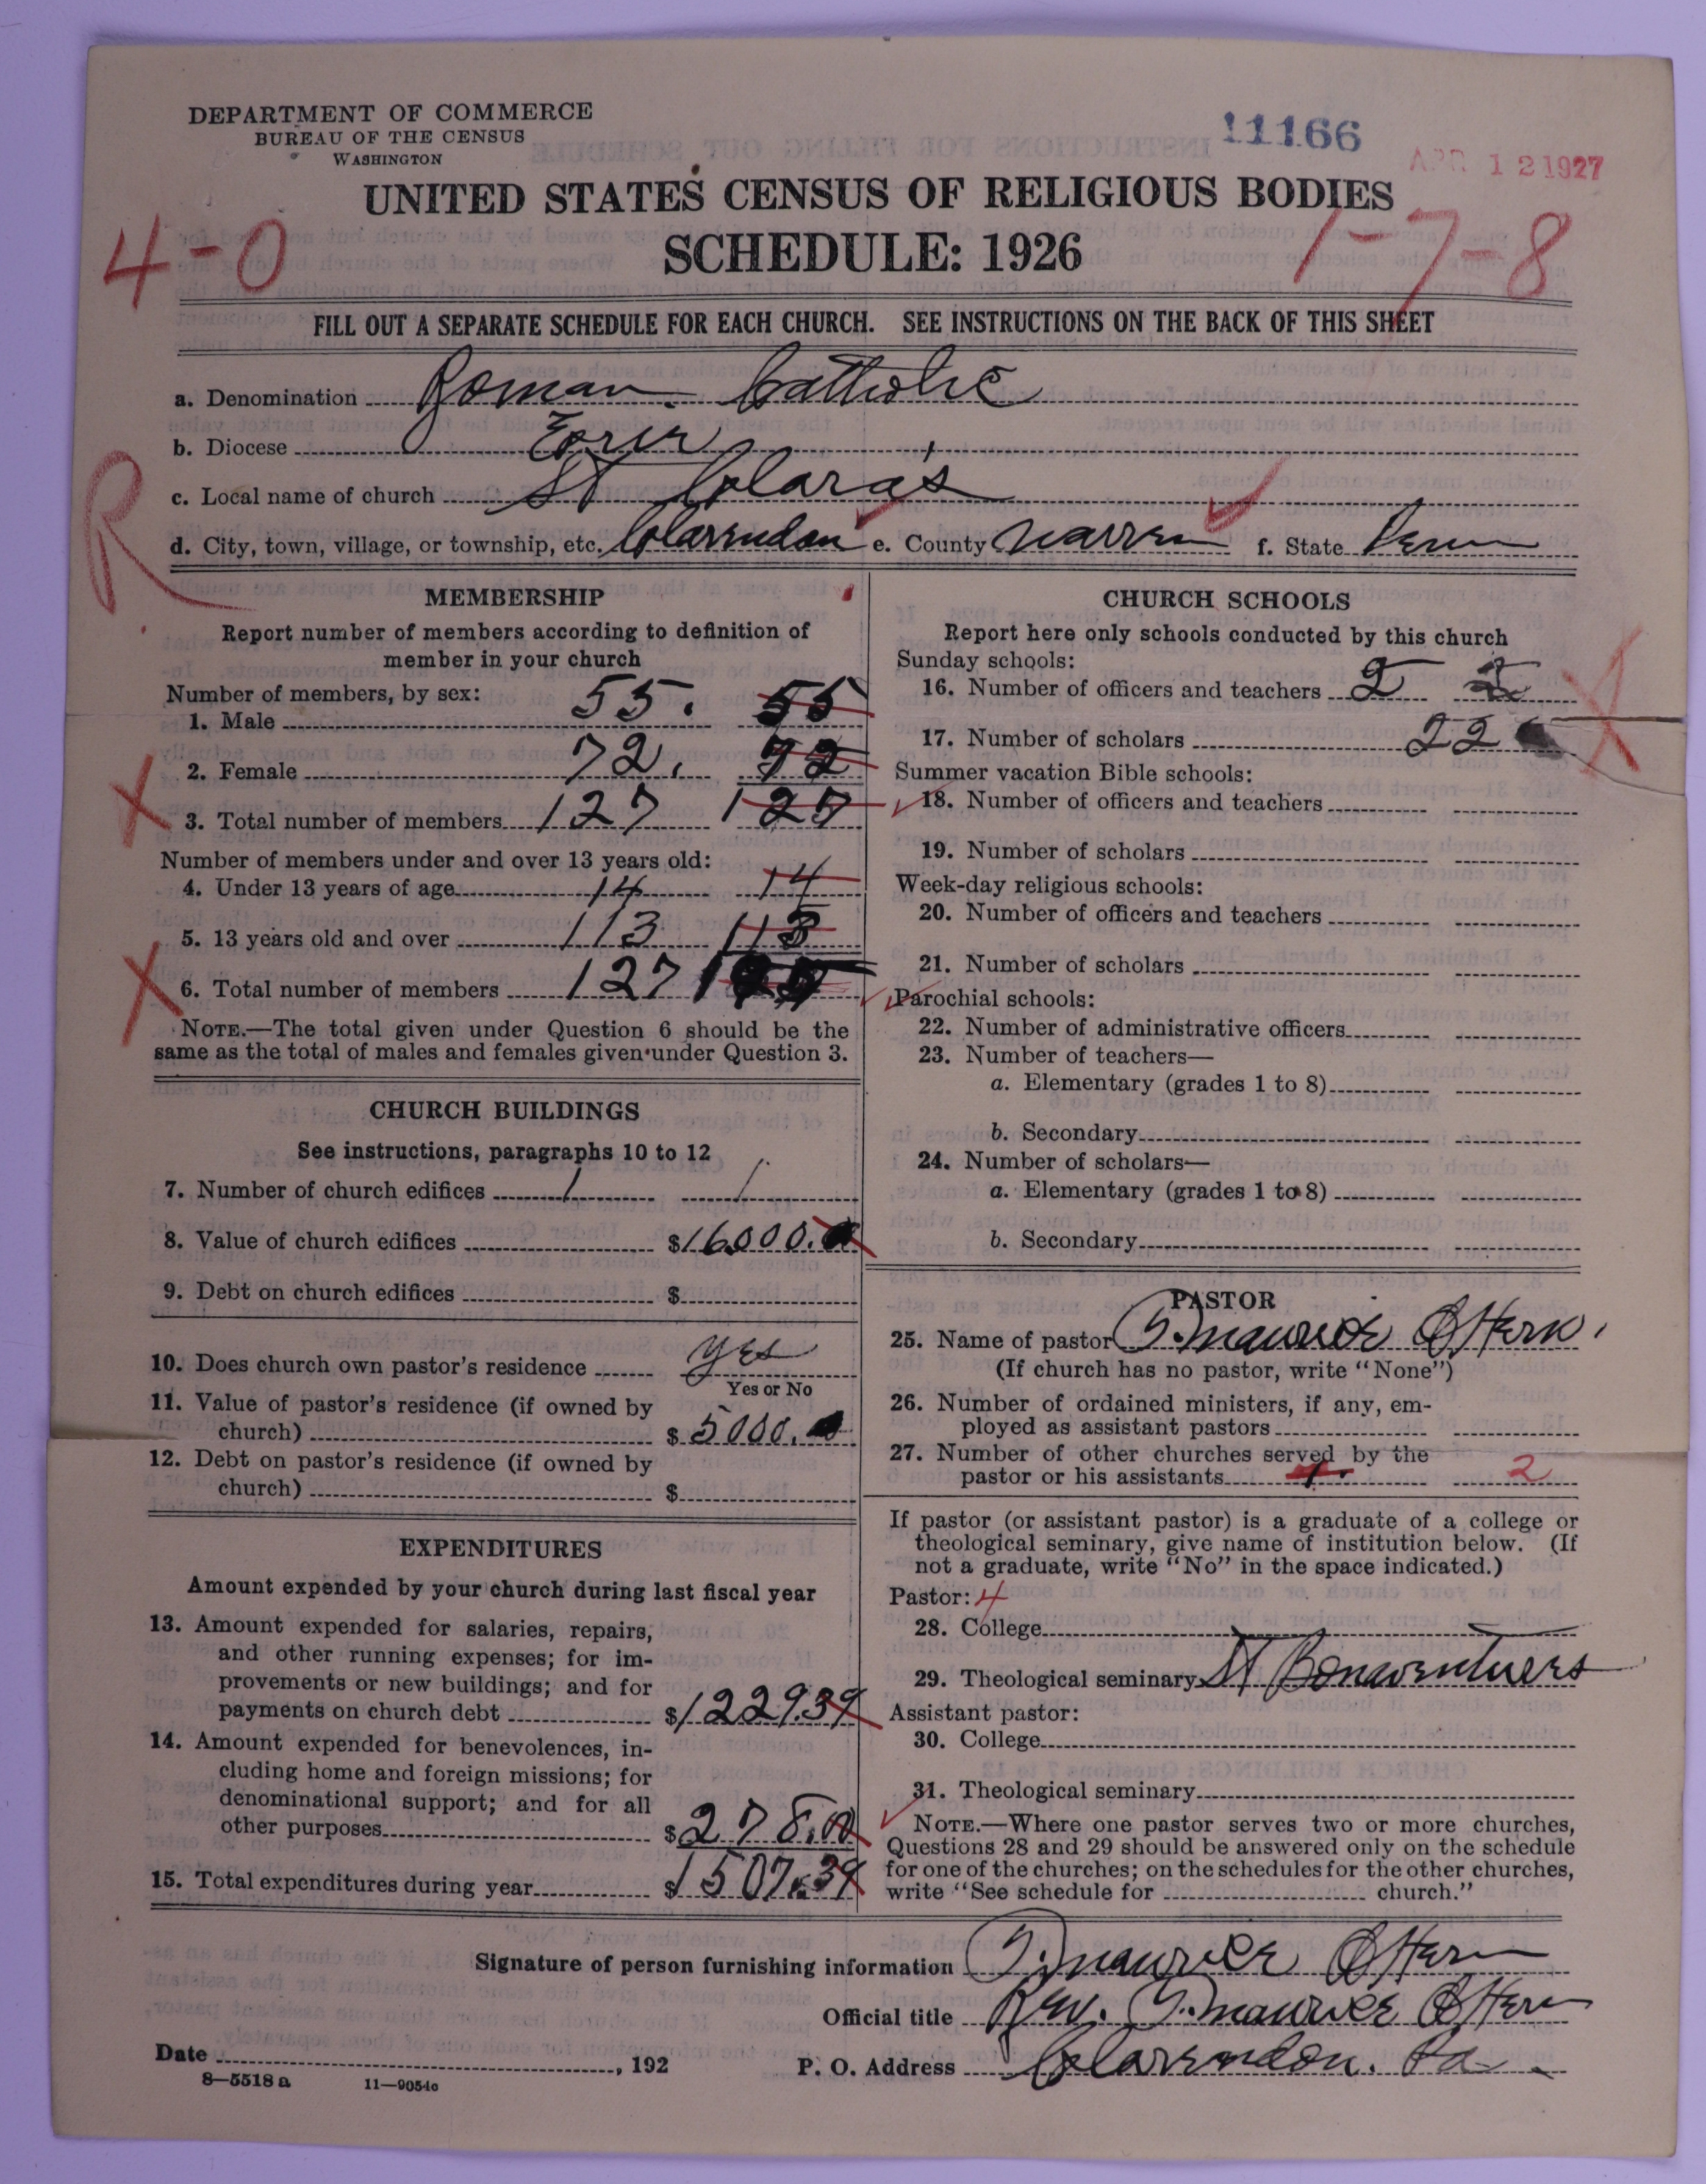 DEPARTMENT OF COMMERCE
BUREAU OF THE CENSUS
WASHINGTON
11166
APR 12 1927
UNITED STATES CENSUS OF RELIGIOUS BODIES
SCHEDULE: 1926
4-0
1-7-8
FILL OUT A SEPARATE SCHEDULE FOR EACH CHURCH. SEE INSTRUCTIONS ON THE BACK OF THIS SHEET
a. Denomination Roman Catholic
b. Diocese Erie
c. Local name of church St Clara's
R
d. City, town, village, or township, etc. Clarendon e. County Warren f. State Penn
MEMBERSHIP
Report number of members according to definition of
member in your church
Number of members, by sex:
1. Male 55. 55
2. Female 72. 72
X
3. Total number of members 127 127
Number of members under and over 13 years old:
4. Under 13 years of age 14 14
5. 13 years old and over 113 113
X
6. Total number of members 127
NOTE.—The total given under Question 6 should be the
same as the total of males and females given under Question 3.
CHURCH BUILDINGS
See instructions, paragraphs 10 to 12
7. Number of church edifices 1 1
8. Value of church edifices $16000.
9. Debt on church edifices $
10. Does church own pastor's residence yes
Yes or No
11. Value of pastor's residence (if owned by
church) $5000.
12. Debt on pastor's residence (if owned by
church) $
EXPENDITURES
Amount expended by your church during last fiscal year
13. Amount expended for salaries, repairs,
and other running expenses; for im-
provements or new buildings; and for
payments on church debt $1229.39
14. Amount expended for benevolences, in-
cluding home and foreign missions; for
denominational support; and for all
other purposes $278.00
15. Total expenditures during year $1507.39
CHURCH SCHOOLS
Report here only schools conducted by this church
Sunday schools:
16. Number of officers and teachers 2 2
X
17. Number of scholars 22
Summer vacation Bible schools:
18. Number of officers and teachers
19. Number of scholars
Week-day religious schools:
20. Number of officers and teachers
21. Number of scholars
Parochial schools:
22. Number of administrative officers
23. Number of teachers—
a. Elementary (grades 1 to 8)
b. Secondary
24. Number of scholars—
a. Elementary (grades 1 to 8)
b. Secondary
PASTOR
25. Name of pastor Maurice
(If church has no pastor, write "None")
26. Number of ordained ministers, if any, em-
ployed as assistant pastors
27. Number of other churches served by the
pastor or his assistants 1. 2
If pastor (or assistant pastor) is a graduate of a college or
theological seminary, give name of institution below. (If
not a graduate, write "No" in the space indicated.)
Pastor: 4
28. College
29. Theological seminary St Bonaventures
Assistant pastor:
30. College
31. Theological seminary
NOTE.—Where one pastor serves two or more churches,
Questions 28 and 29 should be answered only on the schedule
for one of the churches; on the schedules for the other churches,
write "See schedule for church."
Signature of person furnishing information Maurice
Official title Rev. Maurice
Date , 192
P. O. Address Clarendon. Pa.
8—5518 a 11—9054c